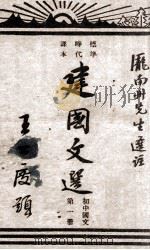 龐南軒先生選註
標準
時代
課本
建國文選
初中國文
第一冊
王
題